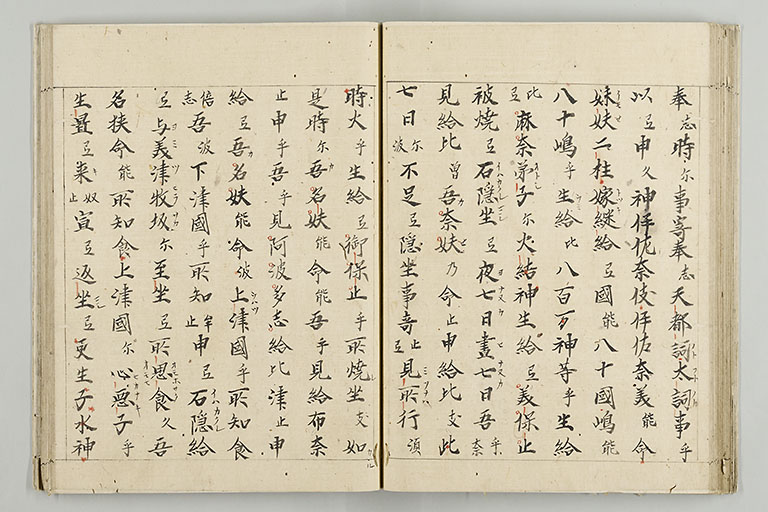 奉志時尓事寄奉志天都詞太詞事乎
以弖申久神伊佐奈伎伊佐奈美能命
妹妋二柱嫁継給弖國能八十國嶋能
八十嶋乎生給比八百万神等乎生給
比弖麻奈弟子尓火結神生給弖美保止
被焼弖石隠坐弖夜七日晝七日吾乎奈
見給比曽吾奈妋乃命止申給比支此
七日尓波不足弖隠坐事奇止弖見所行須
時火乎生給弖御保止乎所焼坐支如
是時尓吾名妋能命能吾乎見給布奈
止申乎吾乎見阿波多志給比津止申
給弖吾名妋能命波上津國乎所知食
倍志吾波下津國乎所知牟止申弖石隠給
弖与義津枚坂尓至坐弖所思食久吾
名狭命能所知食上津國尓心悪子乎
生置弖来奴止宣弖返坐弖更生子水神